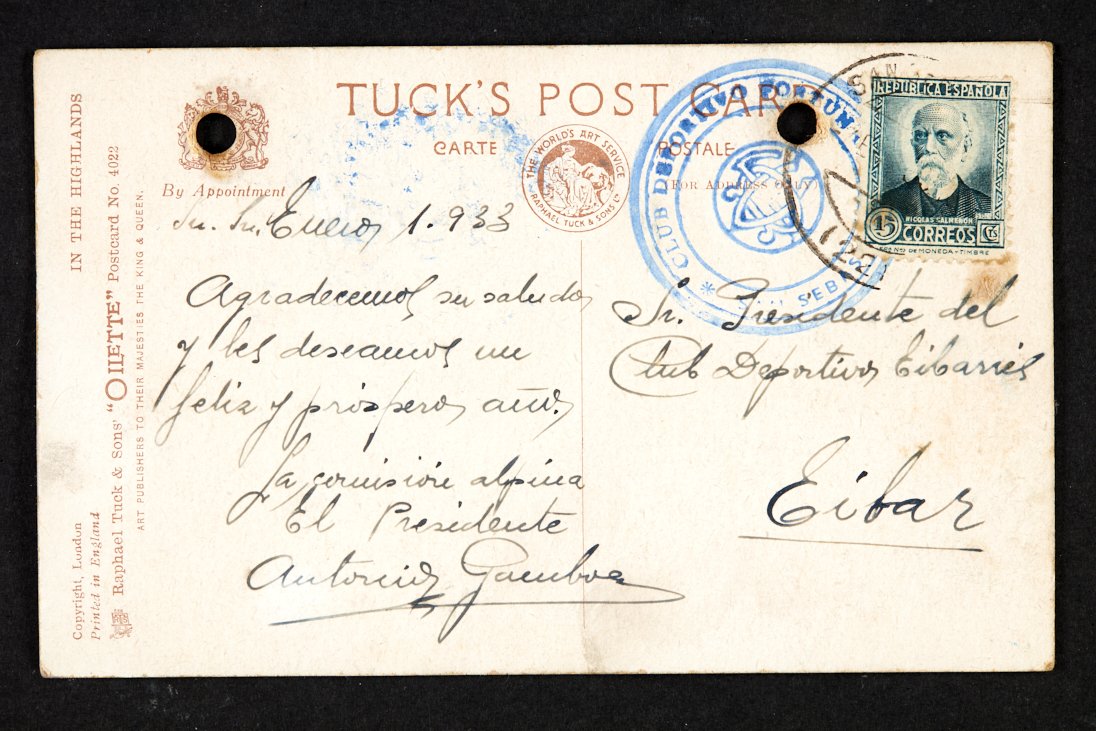 TUCK'S POST CARD
CARTE POSTALE
(FOR ADDRESS ONLY)
By Appointment
THE WORLD'S ART SERVICE
RAPHAEL TUCK & SONS LD
IN THE HIGHLANDS
Raphael Tuck & Sons' "OILETTE" Postcard No. 4022
ART PUBLISHERS TO THEIR MAJESTIES THE KING & QUEEN.
Copyright, London
Printed in England
CLUB DEPORTIVO FORTUNA
* SAN SEB
SAN
REPUBLICA ESPAÑOLA
NICOLAS SALMERON
15 CTS
CORREOS
DE MONEDA Y TIMBRE
Enero, 1.933
Agradecemos su saludo
y les deseamos un
feliz y prospero año.
La comisión alpina
El Presidente
Antonio Gamboa
Sr. Presidente del
Club Deportivo Eibarrés
Eibar